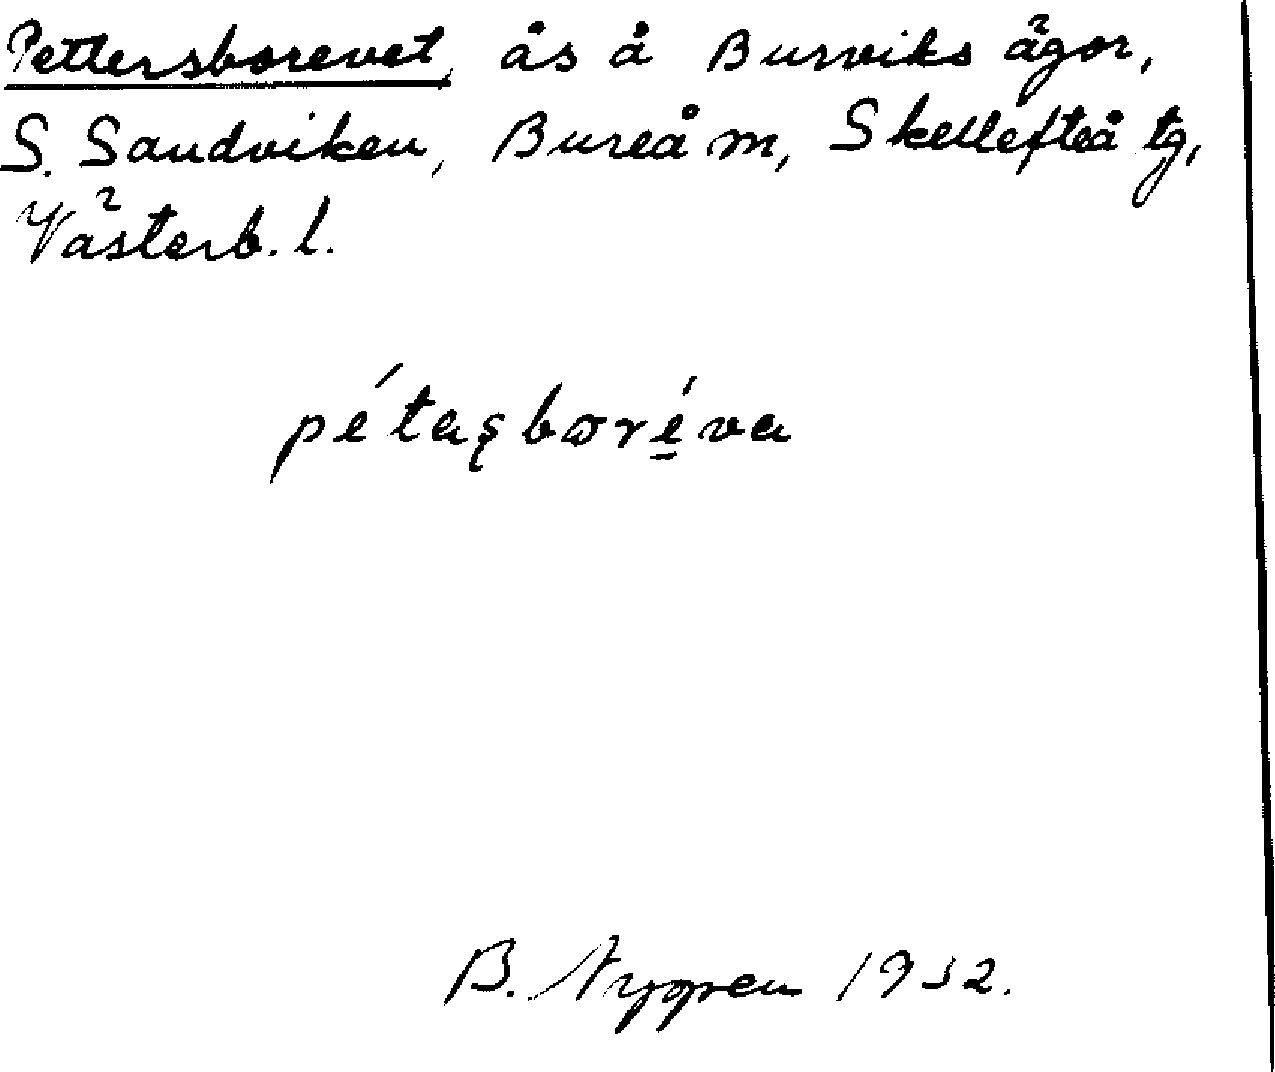 Pettersborevet, ås å Burviks ägor,
S. Sandviken, Bureå m, Skellefteå tg,
Västerb. l.
pétaşboréva
B. Nygren 1932.